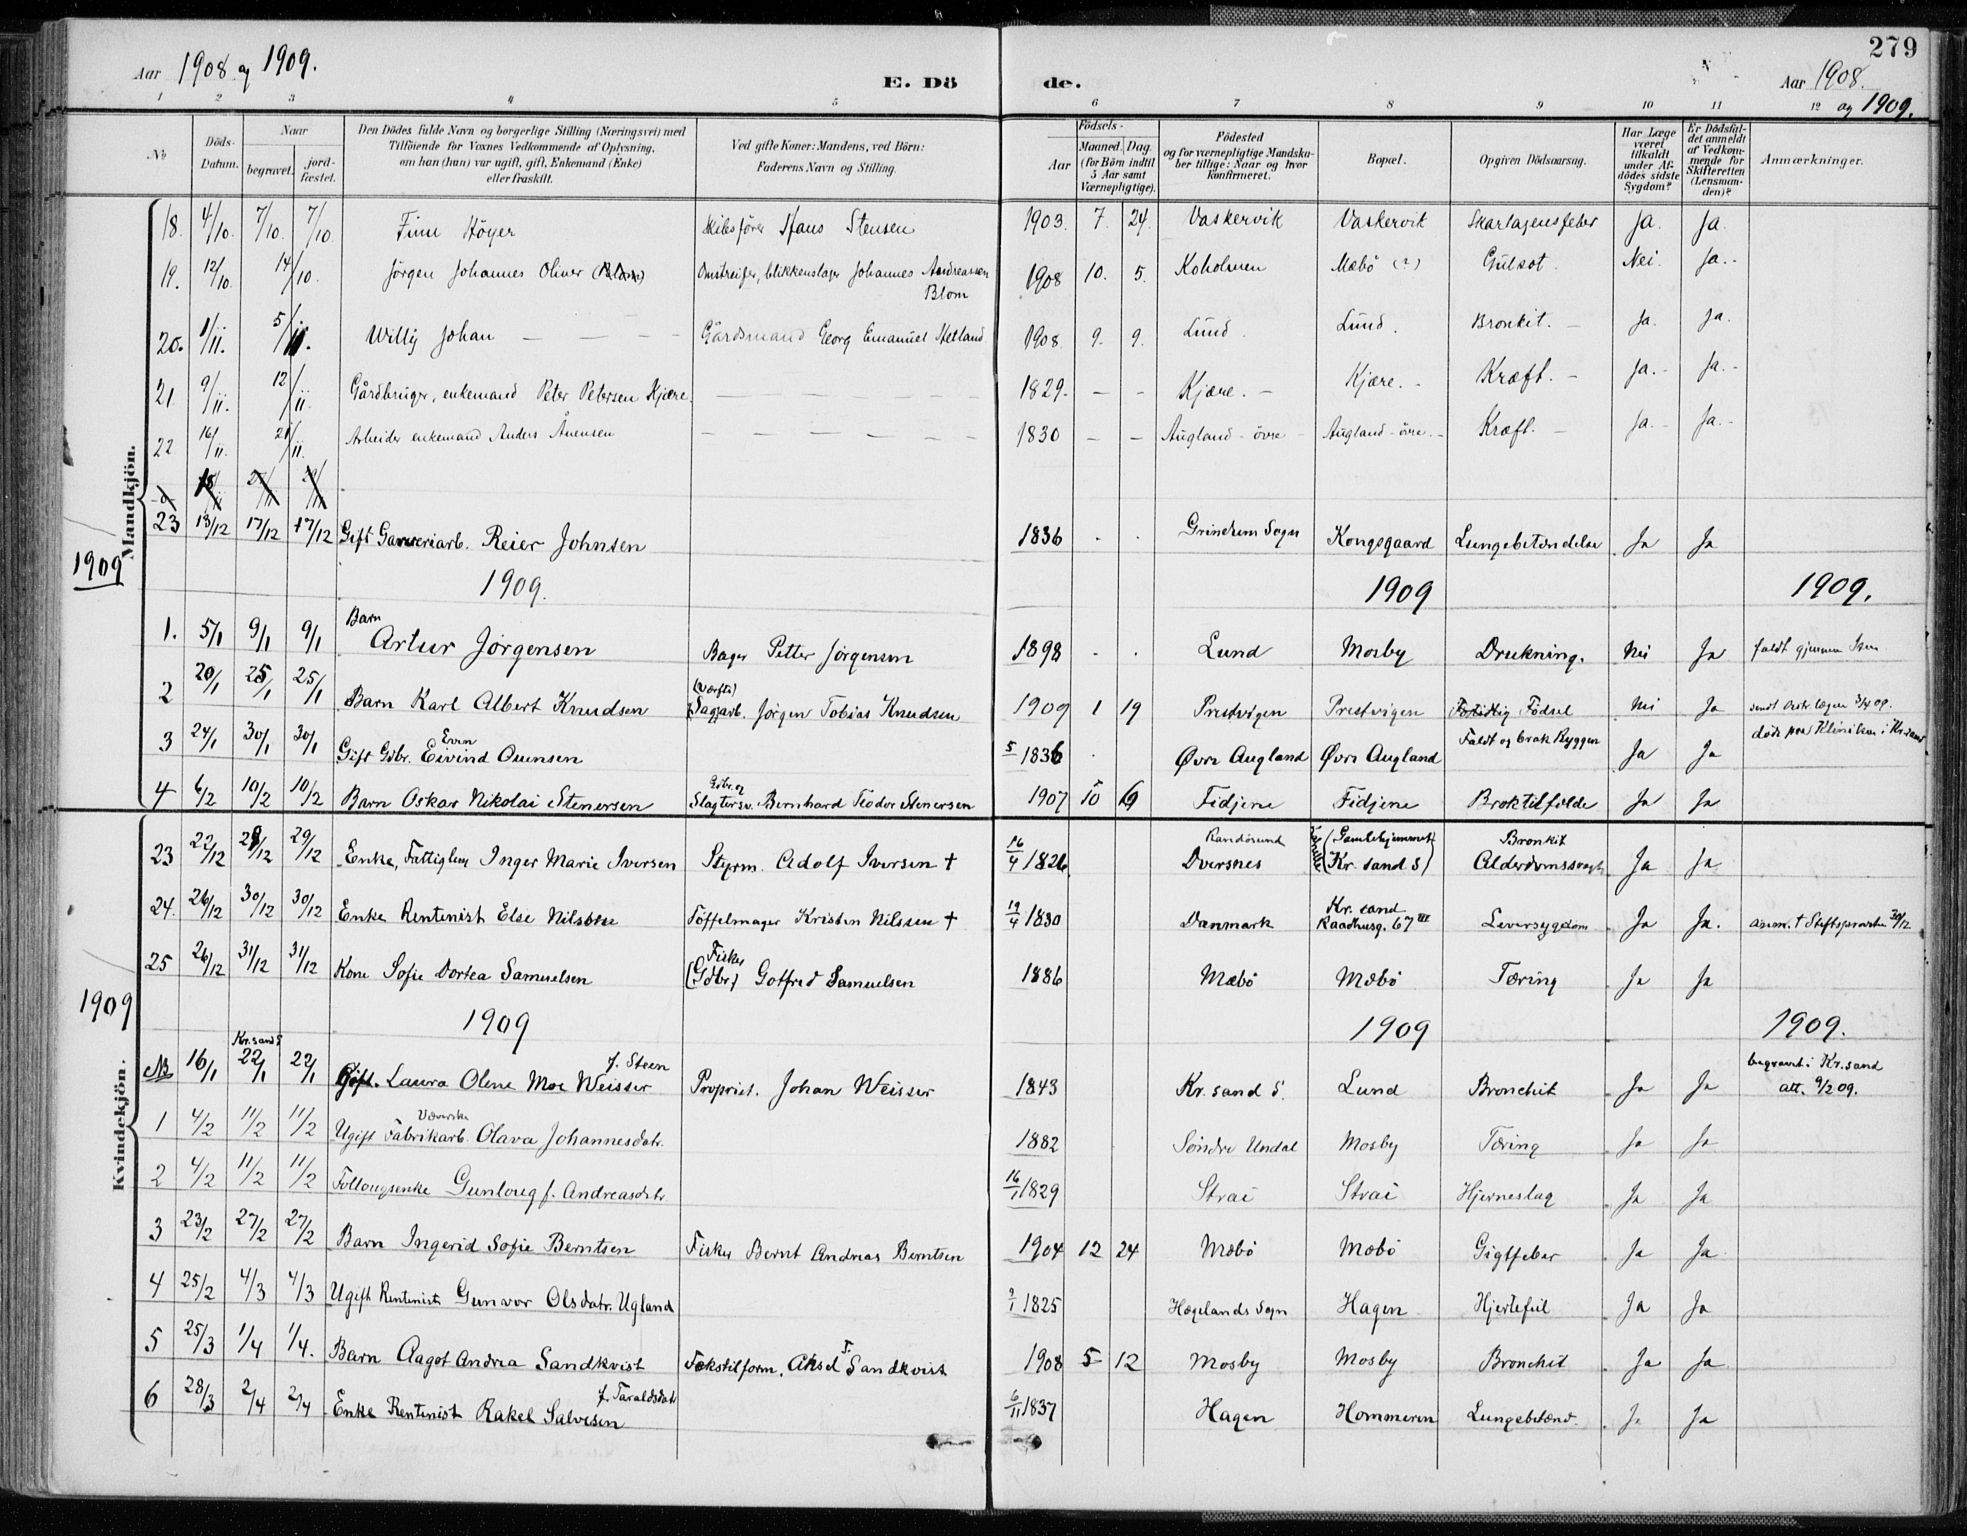 279
Aar 1908 og 1909.
E. Dö
de.
Aar 1908.
og 1909.
1 2 3 4 5 6 7 8 9 10 11 12
No
Döds-Datum.
Naar
begravet.
jord-fæstet.
Den Dödes fulde Navn og borgerlige Stilling (Næringsvei) med
Tilföiende for Voxnes Vedkommende af Oplysning,
om han (hun) var ugift, gift, Enkemand (Enke)
eller fraskilt.
Ved gifte Koner: Mandens, ved Börn:
Faderens Navn og Stilling.
Födsels-
Aar
Maaned. Dag.
(for Börn indtil
5 Aar samt
Værnepligtige).
Födested
og for værnepligtige Mandska-
ber tillige: Naar og hvor
konfirmeret.
Bopæl.
Opgiven Dödsaarsag.
Har Læge
været
tilkaldt
under Af-
dödes sidste
Sygdom?
Er Dödsfal-
det anmeldt
af Vedkom-
mende for
Skifteretten
(Lensman-
den)?
Anmærkninger.
Mandkjön.
18. 4/10. 7/10. 7/10. Finn Höyer Hans Stensen 1903. 7. 24. Vaskervik Vaskervik Skarlagensfeber Ja. Ja.
19. 12/10. 14/10. Jörgen Johannes Oliver (Blom) Omstreifer, blikkenslager Johannes Andreassen
Blom 1908 10. 5. Koholmen Mæbö (?) Gulsot. Nei. Ja.-
20. 1/11. 5/11. Willy Johan — — — Gårdsmand Georg Emanuel Hetland 1908 9. 9. Lund. Lund. Bronkit. — Ja. Ja.
21 9/11. 12/11. Gårdbruger, enkemand Peter Petersen Kjære. — — — 1829. — — Kjære. — Kjære. — Kræft. — Ja. — Ja. —
22 16/11. 21/11. Arbeider enkemand Anders Ånensen — — — 1830 — — Augland - övre — Augland - övre. — Kræft. — Ja. — Ja. —
23 13/12 17/12 17/12 Gift Garveriarb. Reier Johnsen 1836 . . Grindum Sogn Kongsgaard Lungebetændelse Ja Ja
1909
1909. 1909 1909.
1. 5/1 9/1 9/1 Barn
Artur Jørgensen Bager Petter Jørgensen 1898 . . Lund Mosby Drukning. Nei Ja faldt gjennem Isen
2 20/1 25/1 25/1 Barn Karl Albert Knudsen (Værfts)
Sagarb. Jørgen Tobias Knudsen 1909 1 19 Prestvigen Prestvigen Fortidlig Födsel Nei Ja
3 24/1 30/1 30/1 Gift Gdbr. Even
Eivind Ounsen 5 1836 . Øvre Augland Øvre Augland Faldt og brak Ryggen Ja Ja døde paa Kliniken i Kr.sand
4 6/2 10/2 10/2 Barn Oskar Nikolai Stenersen Gdbr. og
Slagtersv. Bernhard Teodor Stenersen 1907 10 19 Fidjene Fidjene Broktilfælde Ja Ja
Kvindekjön.
23 22/12 29/12 29/12 Enke, Fattiglem Inger Marie Iversen Styrm. Adolf Iversen † 16/4 1826. Randøsund
Dversnes (Gamlehjemmet)
(Kr.sand S) Bronkit
Alderdomssvagh. Ja Ja
24. 26/12 30/12 30/12 Enke Rentenist Else Nilsen Töffelmager Kristen Nilssen † 19/4 1830 Danmark Kr. sand
Raadhusg. 67 III Leversygdom Ja Ja. anm. † Stiftsprovsten 30/12
25 26/12 31/12 31/12 Kone Sofie Dortea Samuelsen Fisker
(Gdbr) Gotfred Samuelsen 1886 Mæbø Mæbø Tæring Ja Ja
1909
1909 1909 1909.
NB 16/1 Kr.sand S
22/1 22/1 f. Steen
Gift. Laura Olene Moe Weisser Propriet. Johan Weisser 1843 Kr. sand S. Lund Bronchit Ja Ja begravet i Kr.sand
att. 9/2 09.
1 4/2 11/2 11/2 Væverske
Ugift Fabrikarb. Olava Johannesdatr. 1882 Søndre Undal Mosby Tæring Ja Ja
2 4/2 11/2 11/2 Follougsenke Gunloug f. Andreasdtr. 16/1 1829 Strai Strai Hjerneslag Ja Ja
3 23/2 27/2 27/2 Barn Ingerid Sofie Berntsen Fisker Bernt Andreas Berntsen 1904 12 24 Mæbø Mæbø Gigtfeber Ja Ja
4 25/2 4/3 4/3 Ugift Rentenist Gunvor Olsdatr. Ugland 9/1 1825 Hægelands Sogn Hagen Hjertefeil Ja Ja
5 25/3 1/4 1/4. Barn Aagot Andrea Sandkvist Tekstilform. Aksel F. Sandkvist 1908 5 12 Mosby Mosby Bronchit Ja Ja
6 28/3 2/4 2/4 f. Taraldsdatr
Enke Rentenist Rakel Salvesen 6/11 1837 Hagen Hommeren Lungebetænd. Ja Ja